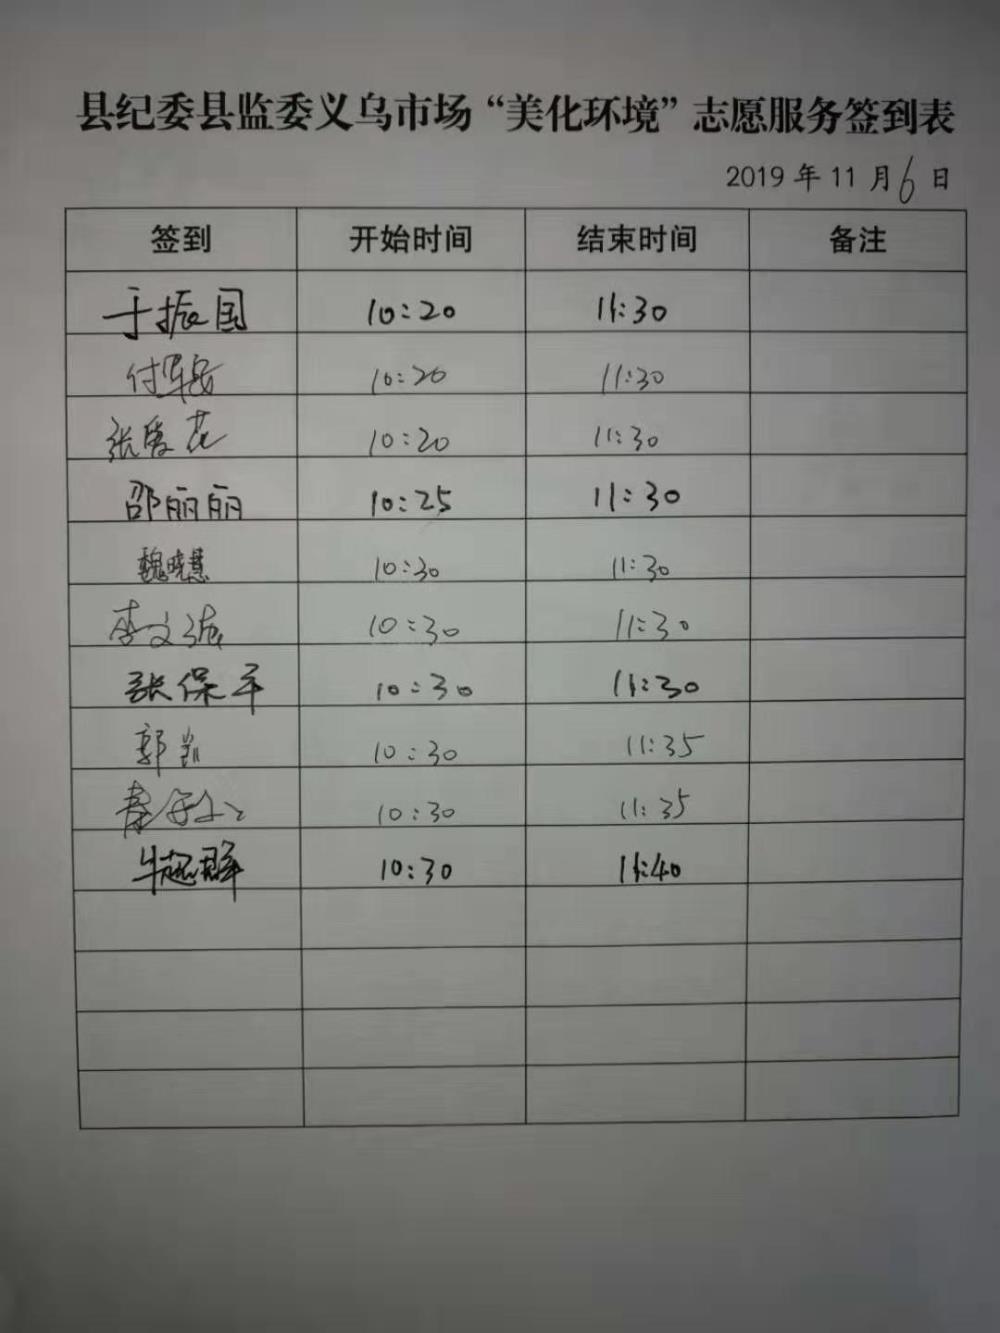 县纪委县监委义乌市场“美化环境”志愿服务签到表
2019 年 11 月 6 日
签到 开始时间 结束时间 备注
于振国 10:20 11:30
付 10:20 11:30
张爱花 10:20 11:30
邵丽丽 10:25 11:30
魏晓慧 10:30 11:30
李文 10:30 11:30
张保平 10:30 11:30
郭凯 10:30 11:35
秦 10:30 11:35
牛超群 10:30 11:40